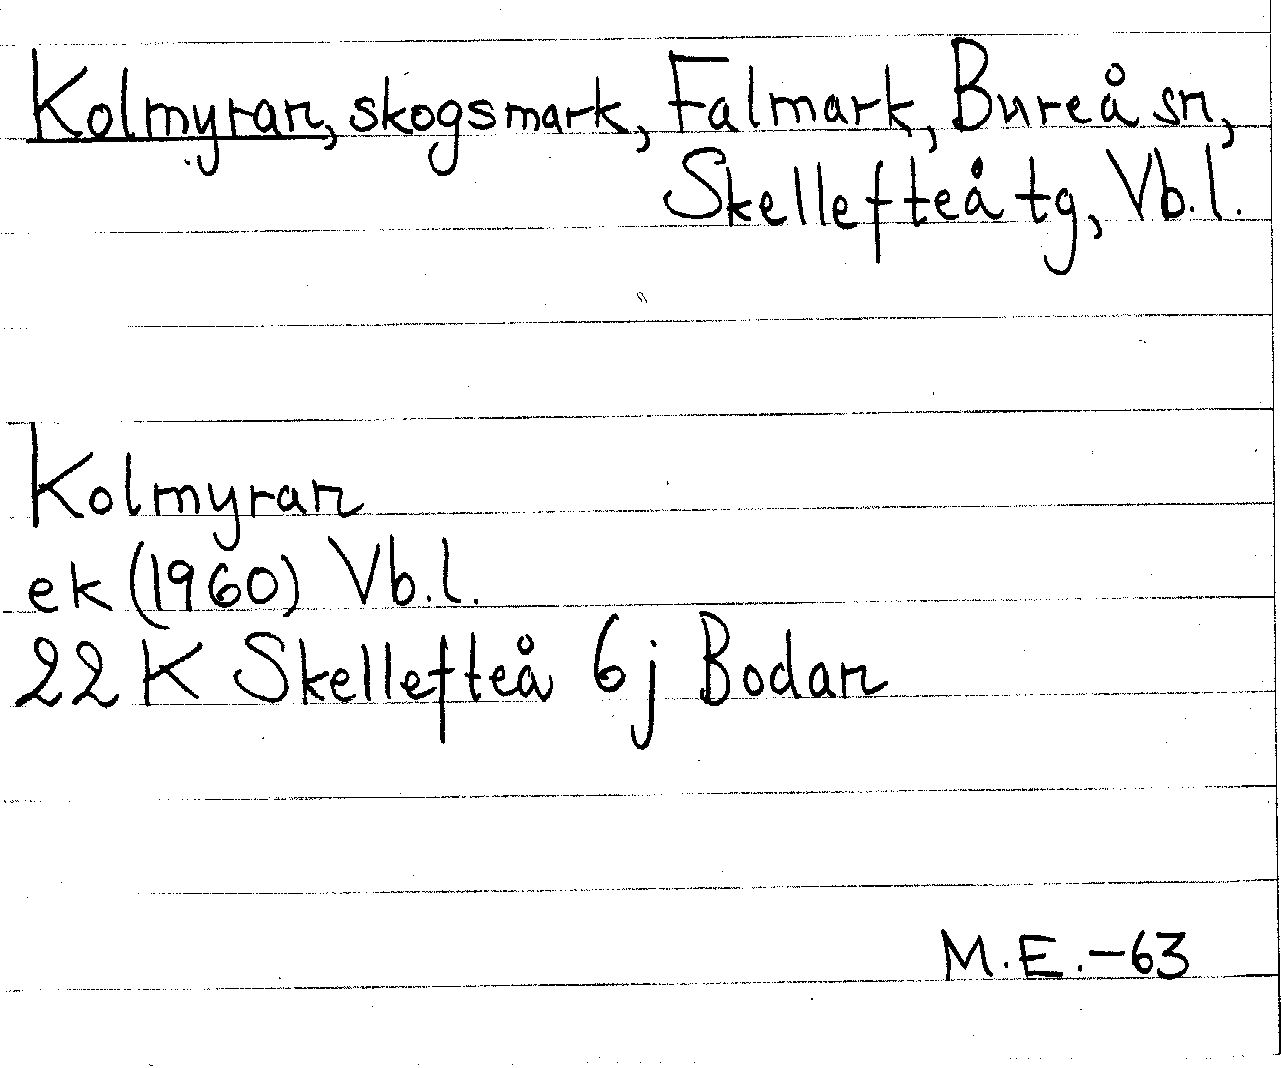 Kolmyran, skogsmark, Falmark, Bureå sn,
Skellefteå tg, Vb.l.
Kolmyran
ek (1960) Vb.l.
22 K Skellefteå 6j Bodan
M.E.-63